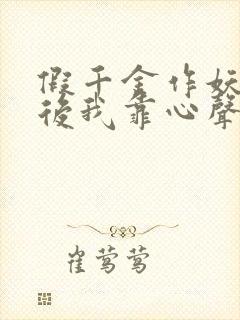 假千金作妖
後我靠心聲
崔莺莺